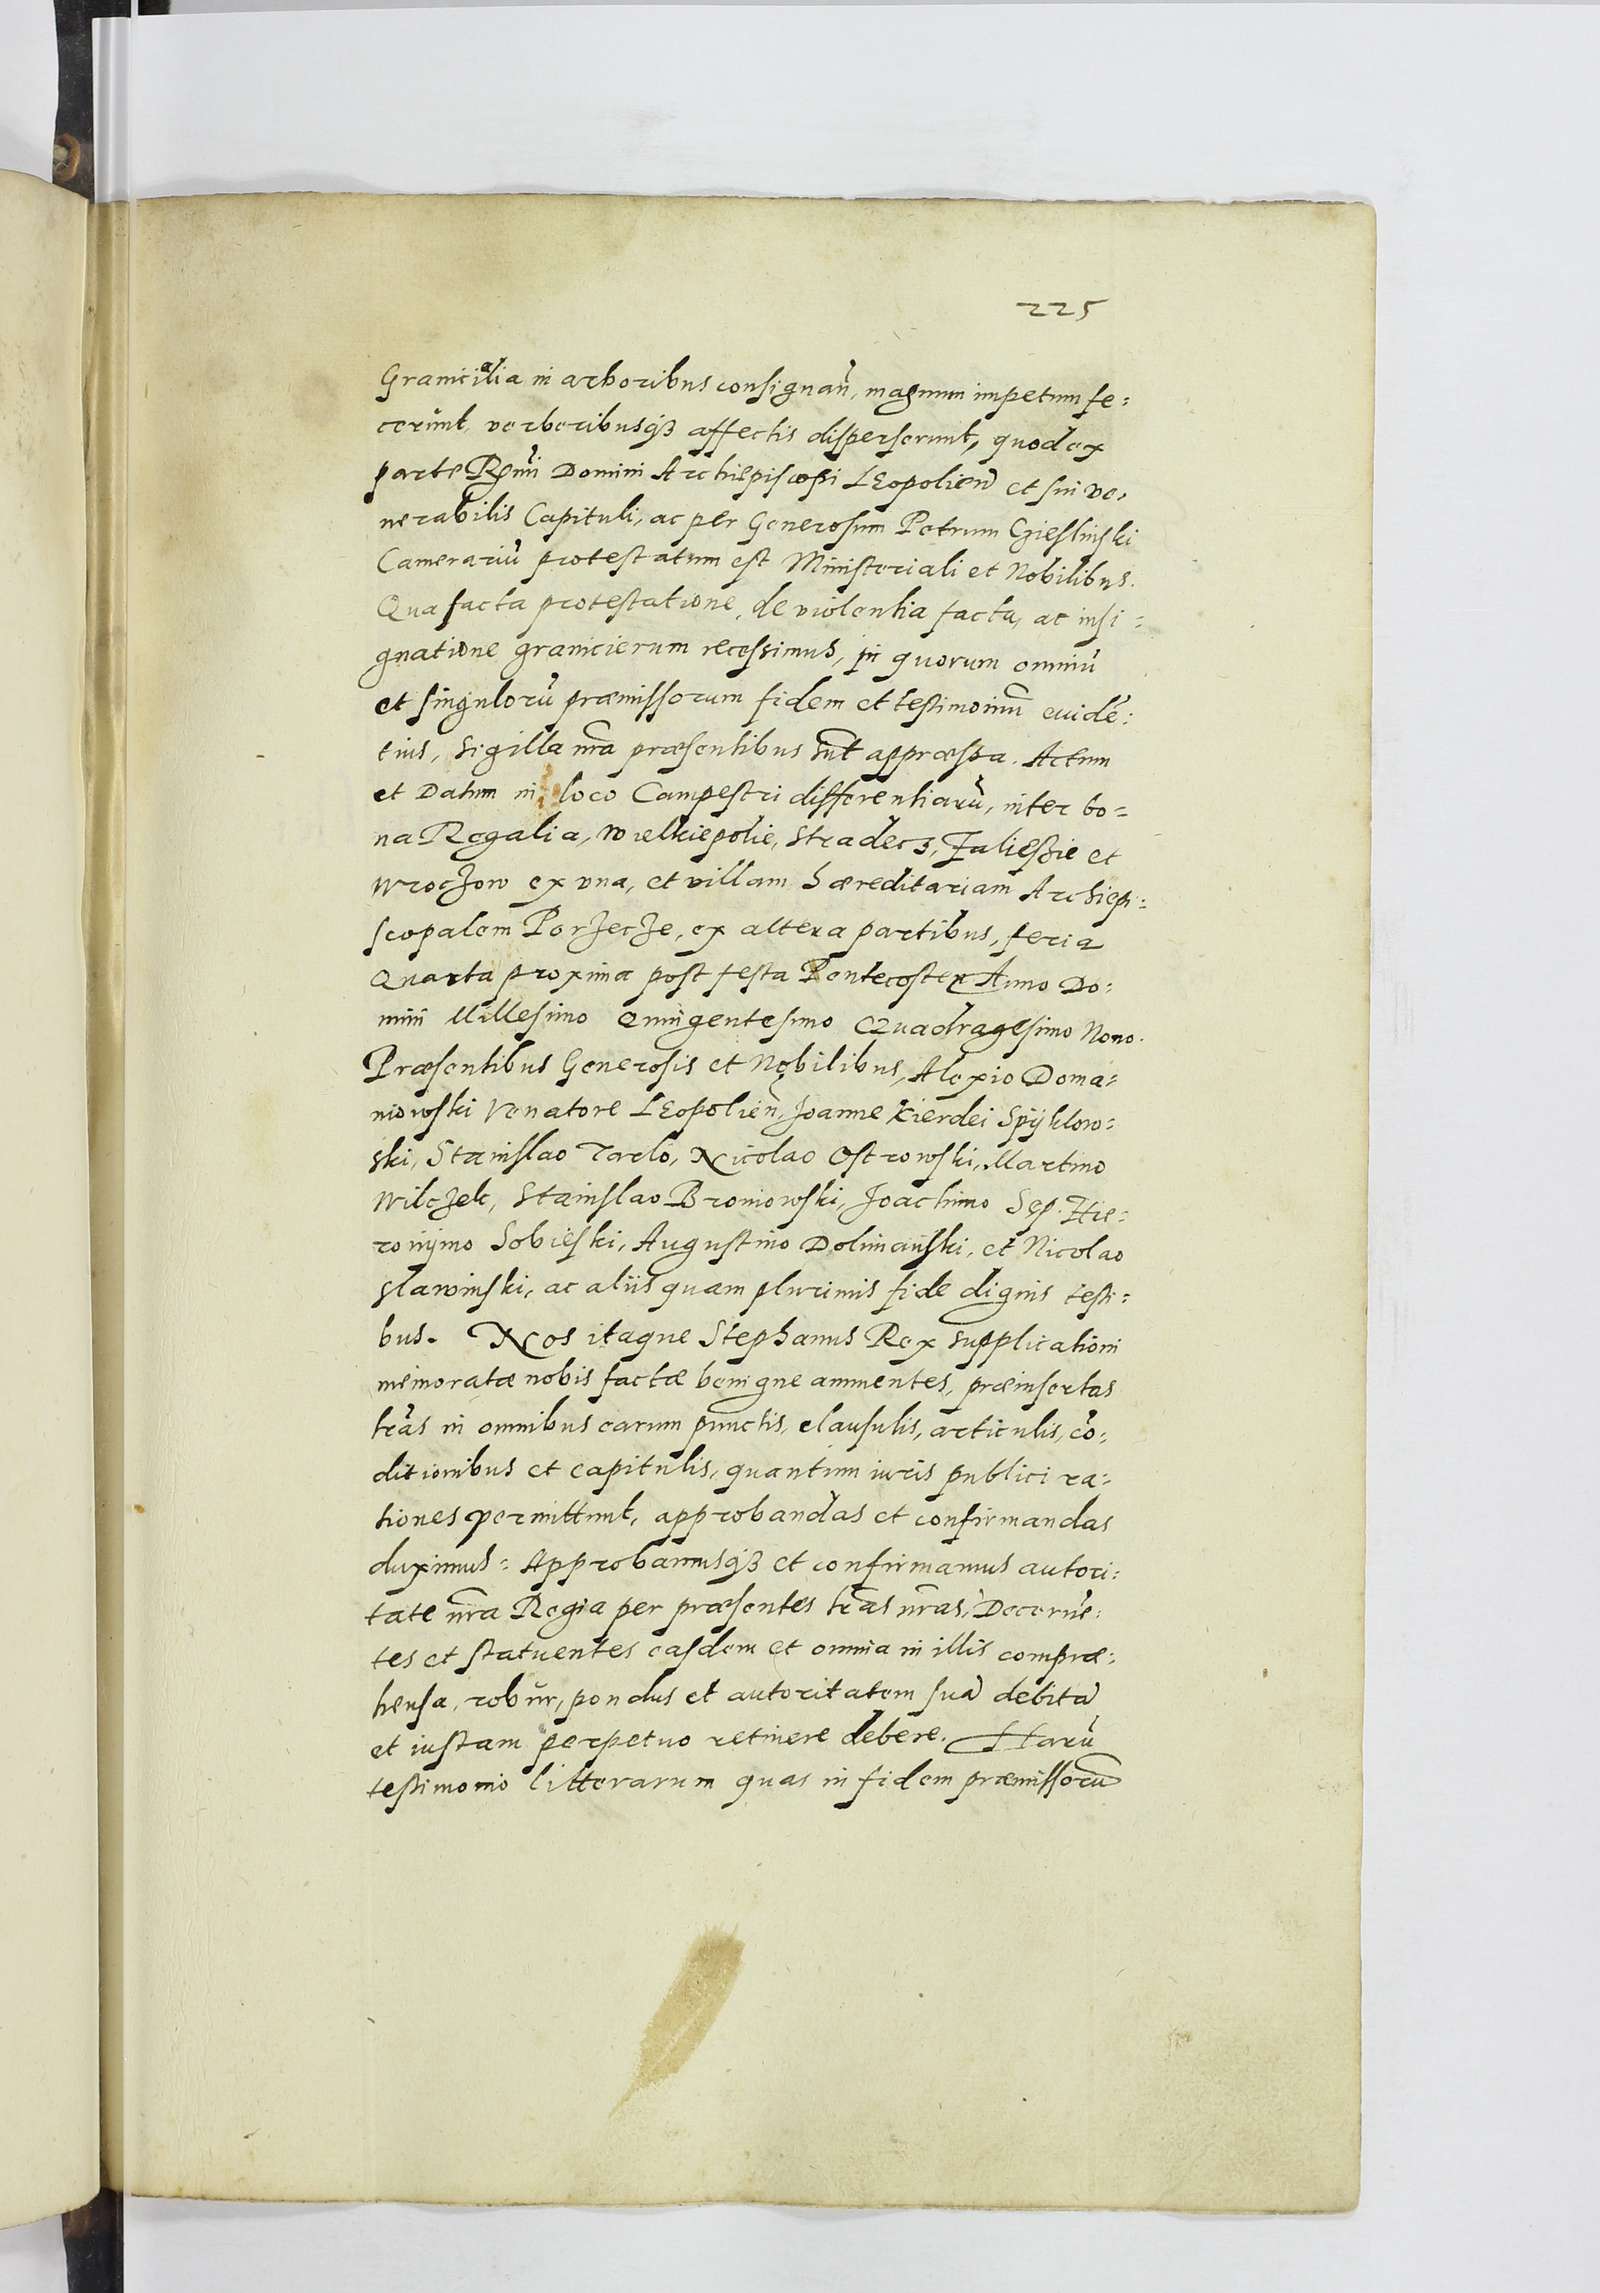 225
Granicialia in arboribus consignañ, magnum impetum fe:
cerunt, verberibusq3 affectis disperserunt, quod ex
parte Rx̃mi Domini Archiepiscopi LEopolieñ et sui ve,
nerabilis Capituli, ac per Generosum Petrum Czieslinski
Camerariũ protestatum est Ministeriali et Nobilibus.
Qua facta protestatione, de violentia facta, ac insi:
gnatione granicierum recessimus, in quorum omniũ
et singulorũ præmissorum fidem et testimoniũ euidẽ:
tius, sigilla nr̃a præsentibus sũt appræssa. Actum
et Datum in loco Campestri differentiarũ, inter bo=
na Regalia, wielkiepolie, Stradecz, Zaliesze et
wroczow ex vna, et villam hæreditariam Archiepi:
scopalem Porzecze, ex altera partibus, feria
Quarta proxima post festa Pentecosten Anno Do:
mini Millesimo Quingentesimo Quadragesimo Nono.
Præsentibus Generosis et Nobilibus, Alexio Doma=
niowski Venatore LEopolieñ, Joanne kierdei Spiiklow=
ski, Stanislao Tarlo, Nicolao Ostrowski, Martino
wilczek, Stanislao Broniowski, Joachimo Sep. Hie=
ronijmo Sobieski, Augustino Dolimanski, et Nicolao
slawinski, ac aliis quam plurimis fide dignis testi=
bus. Nos itaque Stephanus Rex supplicationi
memoratæ nobis factæ benigne annuentes, præinsertas
lr̃as in omnibus earum punctis, clausulis, articulis, cõ:
ditionibus et capitulis, quantum iuris publici ra=
tiones permittunt, approbandas et confirmandas
duximus: Approbamusq3 et confirmamus autori:
tate nr̃a Regia per præsentes lr̃as nr̃as, Decernẽ:
tes et statuentes easdem et omnia in illis compræ:
hensa, robur, pondus et autoritatem suã debitã
et iustam perpetuo retinere debere. Harũ
testimonio litterarum quas in fidem præmissorũ